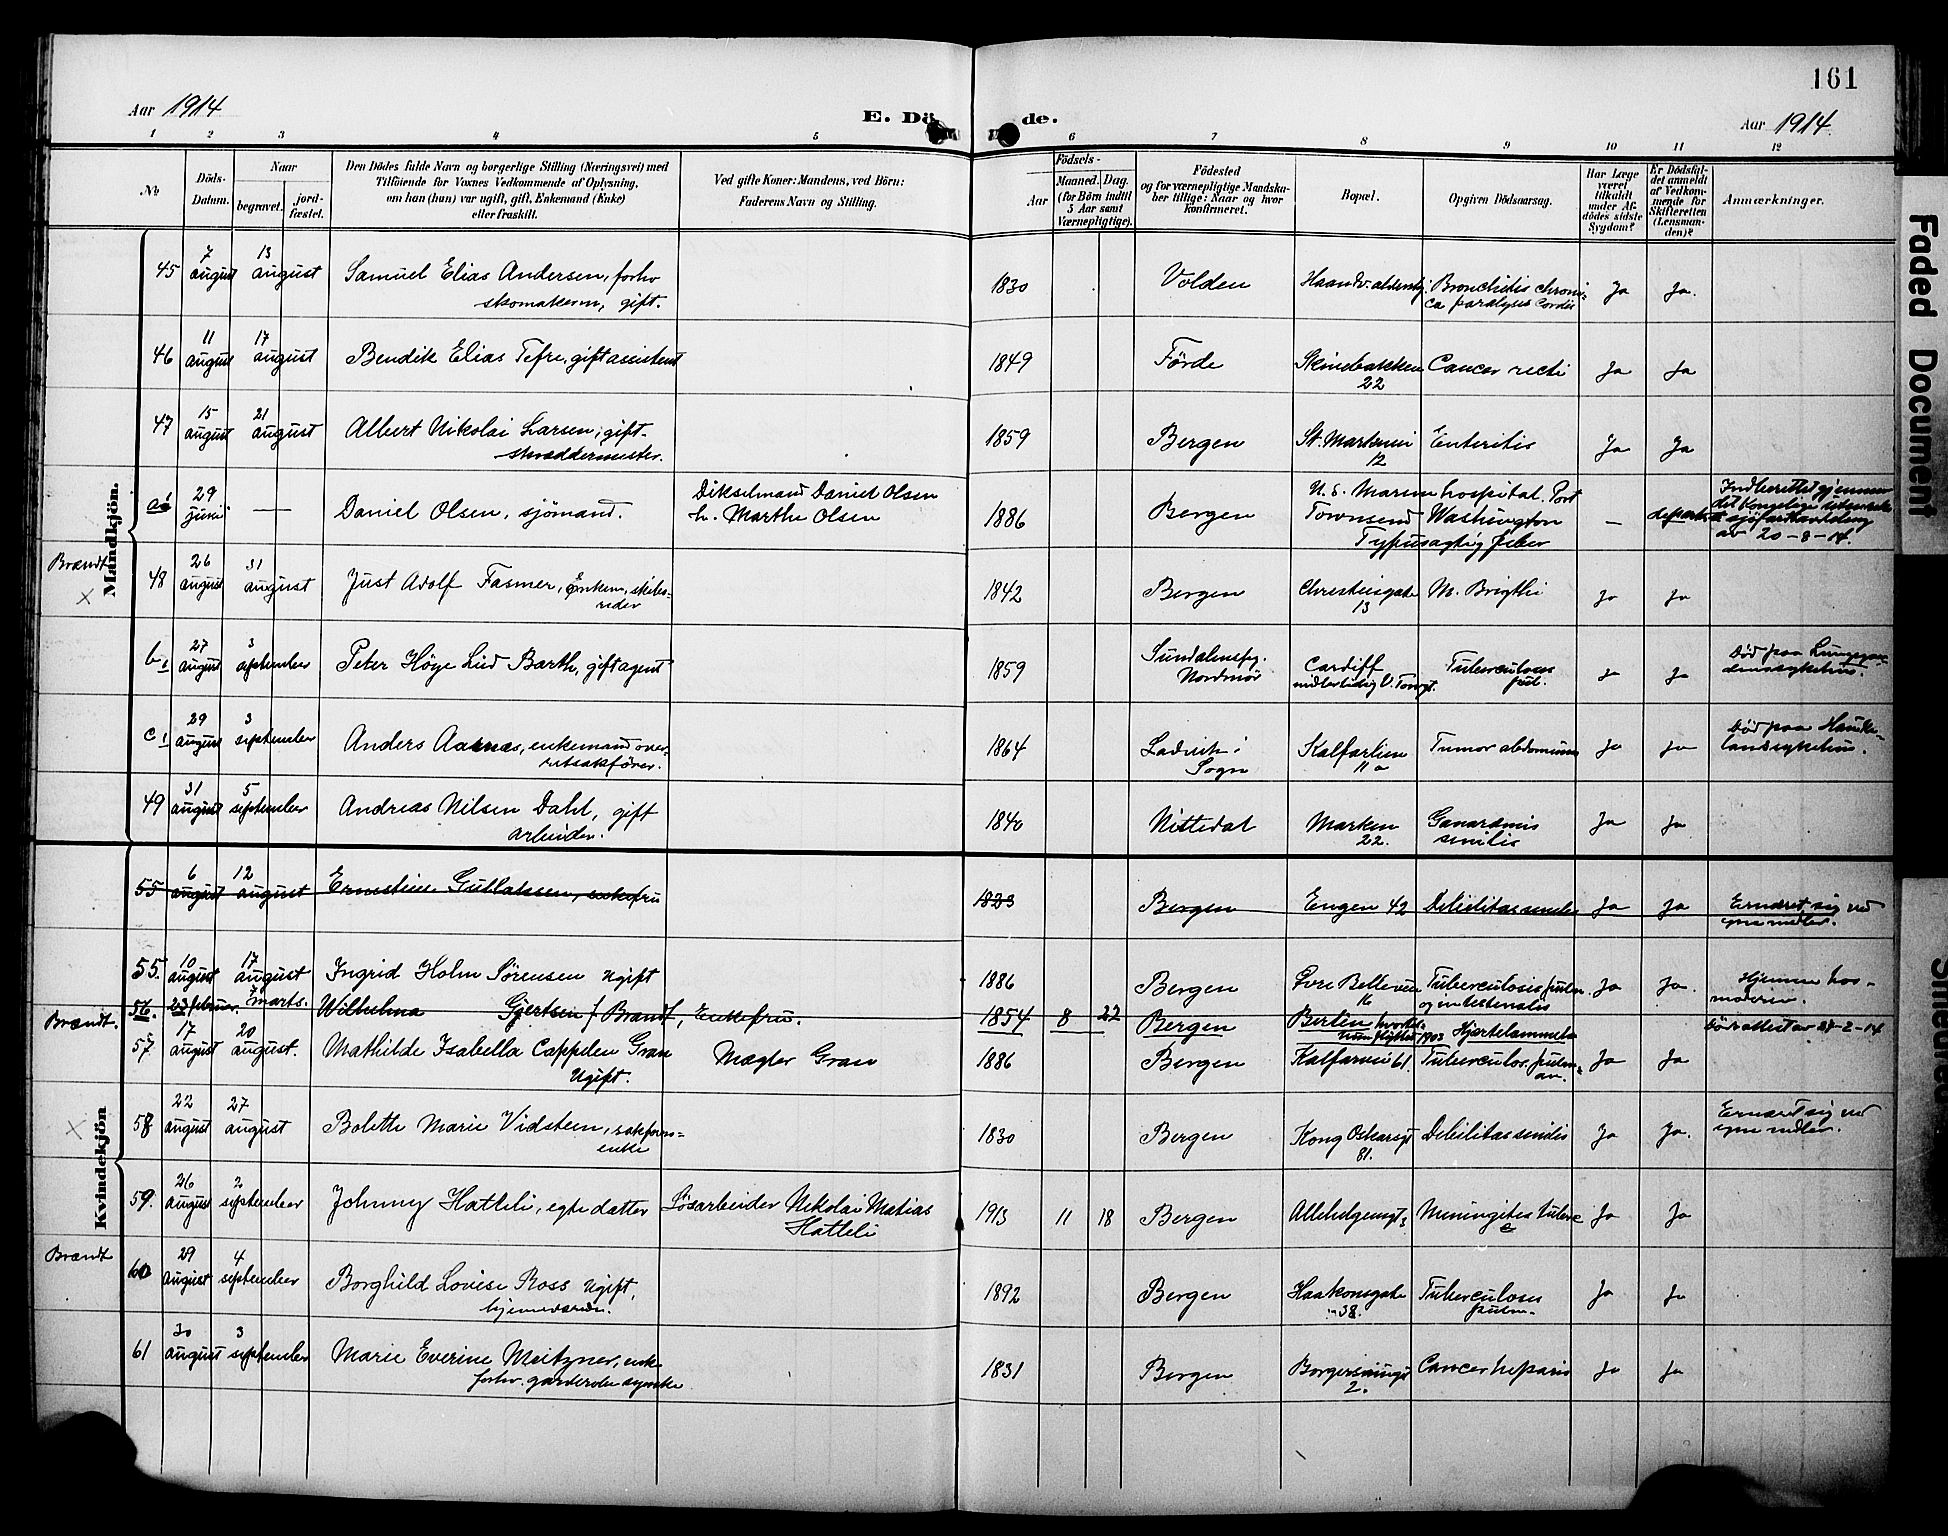 161
Aar 1914
E. Dö de.
Aar 1914.
1 2 3 4 5 6 7 8 9 10 11 12
No
Döds-Datum.
Naar
begravet.
jord-fæstet.
Den Dödes fulde Navn og borgerlige Stilling (Næringsvei) med
Tilföiende for Voxnes Vedkommende af Oplysning,
om han (hun) var ugift, gift, Enkemand (Enke)
eller fraskilt.
Ved gifte Koner: Mandens, ved Börn:
Faderens Navn og Stilling.
Födsels-
Aar
Maaned. Dag.
(for Börn indtil
5 Aar samt
Værnepligtige).
Födested
og for værnepligtige Mandska-
ber tillige: Naar og hvor
konfirmeret.
Bopæl.
Opgiven Dödsaarsag.
Har Læge
været
tilkaldt
under Af-
dödes sidste
Sygdom?
Er Dödsfal-
det anmeldt
af Vedkom-
mende for
Skifteretten
(Lensman-
den)?
Anmærkninger.
Mandkjön.
45 7 august 13 august Samuel Elias Andersen, forhv
skomakersv, gift.
1830 Volden Bronchitis chroni-
ca paralysis cordis Ja Ja.
46 11 august 17 august Bendik Elias Tefre, gift assistent
1849 Förde Skivebakken
22 Cancer recti Ja Ja
47 15 august 21 august Albert Nikolai Larsen, gift
skræddermester.
1859 Bergen St. Markevei
12 Enteritis Ja Ja
29 juni — Daniel Olsen, sjömand. Dikselmand Daniel Olsen
h. Marthe Olsen
1886 Bergen U. S. Marine hospital. Port
Townsend Washington
—
av 20-8-14.
Brændt
48 26 august 31 august Just Adolf Fasmer, Enkem, skibs-
reder
1842 Bergen Christiesgate
13 M. Brigthi Ja Ja
27 august 3 september Peter Höye Lied Barth, gift agent
1859 Nordmör Cardiff
Tuberculoses
pul. Ja Ja Död paa Lungegaa-
29 august 3 september Anders Aarnes, enkemand over-
retsakförer.
1864 Ladvik i
Sogn Kalfarlien
11 a Tumor abdominis Ja Ja Död paa Hauke-
landsykehus.
49 31 august 5 september Andreas Nilsen Dahl, gift
arbeider.
1840 Nittedal Marken
22. senilis Ja Ja
Kvindekjön
55 6 august 12 august Ernestine enkefru
1823 Bergen Engen 42 Debilitas senilis Ja Ja Ernæret sig ved
egne midler.
55. 10 august 17 august Ingrid Holm Sörensen ugift
1886 Bergen Övre Bellevue
16 Tuberculosis pulm
og intestinalis Ja Ja. Hjemme hos
moderen.
Brændt.
56. 23 februar. 7 marts. Wilhelma Gjertsen f. Brandt, Enkefru.
1854 8 22 Bergen Berlin, hvortil
hun flyttet 1903 Hjertelammelse Dödsattest av 27-2-14
57 17 august 20 august. Mathilde Isabella Cappelen Gran
Ugift. Mægler Gran
1886 Bergen Kalfarvei 61. Tuberculos. pulm-
on. Ja Ja
58 22 august 27 august Bolette Marie Vidsteen, sakförer-
enke
1830 Bergen Kong Oscarsgt
81. Debilitas senilis Ja Ja. Ernæret sig ved
egne midler.
59. 26 august 2 september Johnny Hatteli, egte datter Lösarbeider Nikolai Matias
Hatteli
1913 11 18 Bergen Allehelgensgt 3 Meningites tuberc Ja Ja
Brændt
60 29 august 4 september Borghild Lovise Ross ugift,
hjemmeværen.
1892 Bergen Haakonsgate
38. Tuberculoses
pulm. Ja Ja
61 30 august 3 september Marie Everine Meitzner, enke
forhv. garderobesyerske
1831 Bergen 2. Cancer heparis Ja Ja
Faded Document